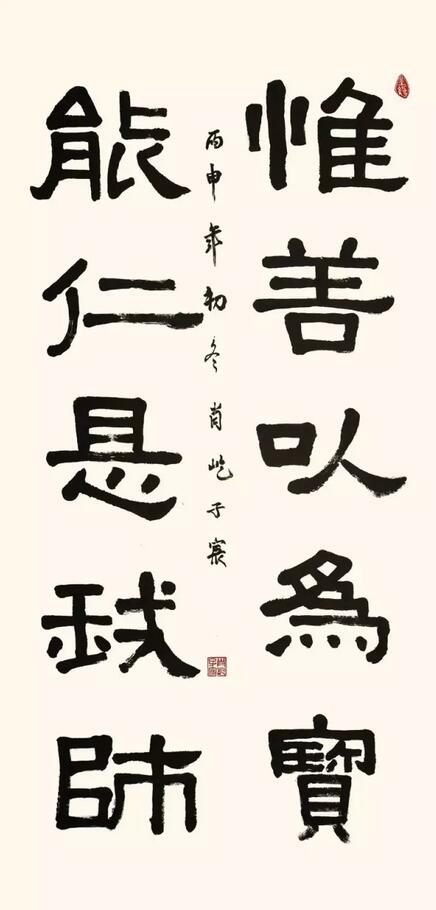 惟善以為寶
能仁是我師
丙申年初冬肖屹